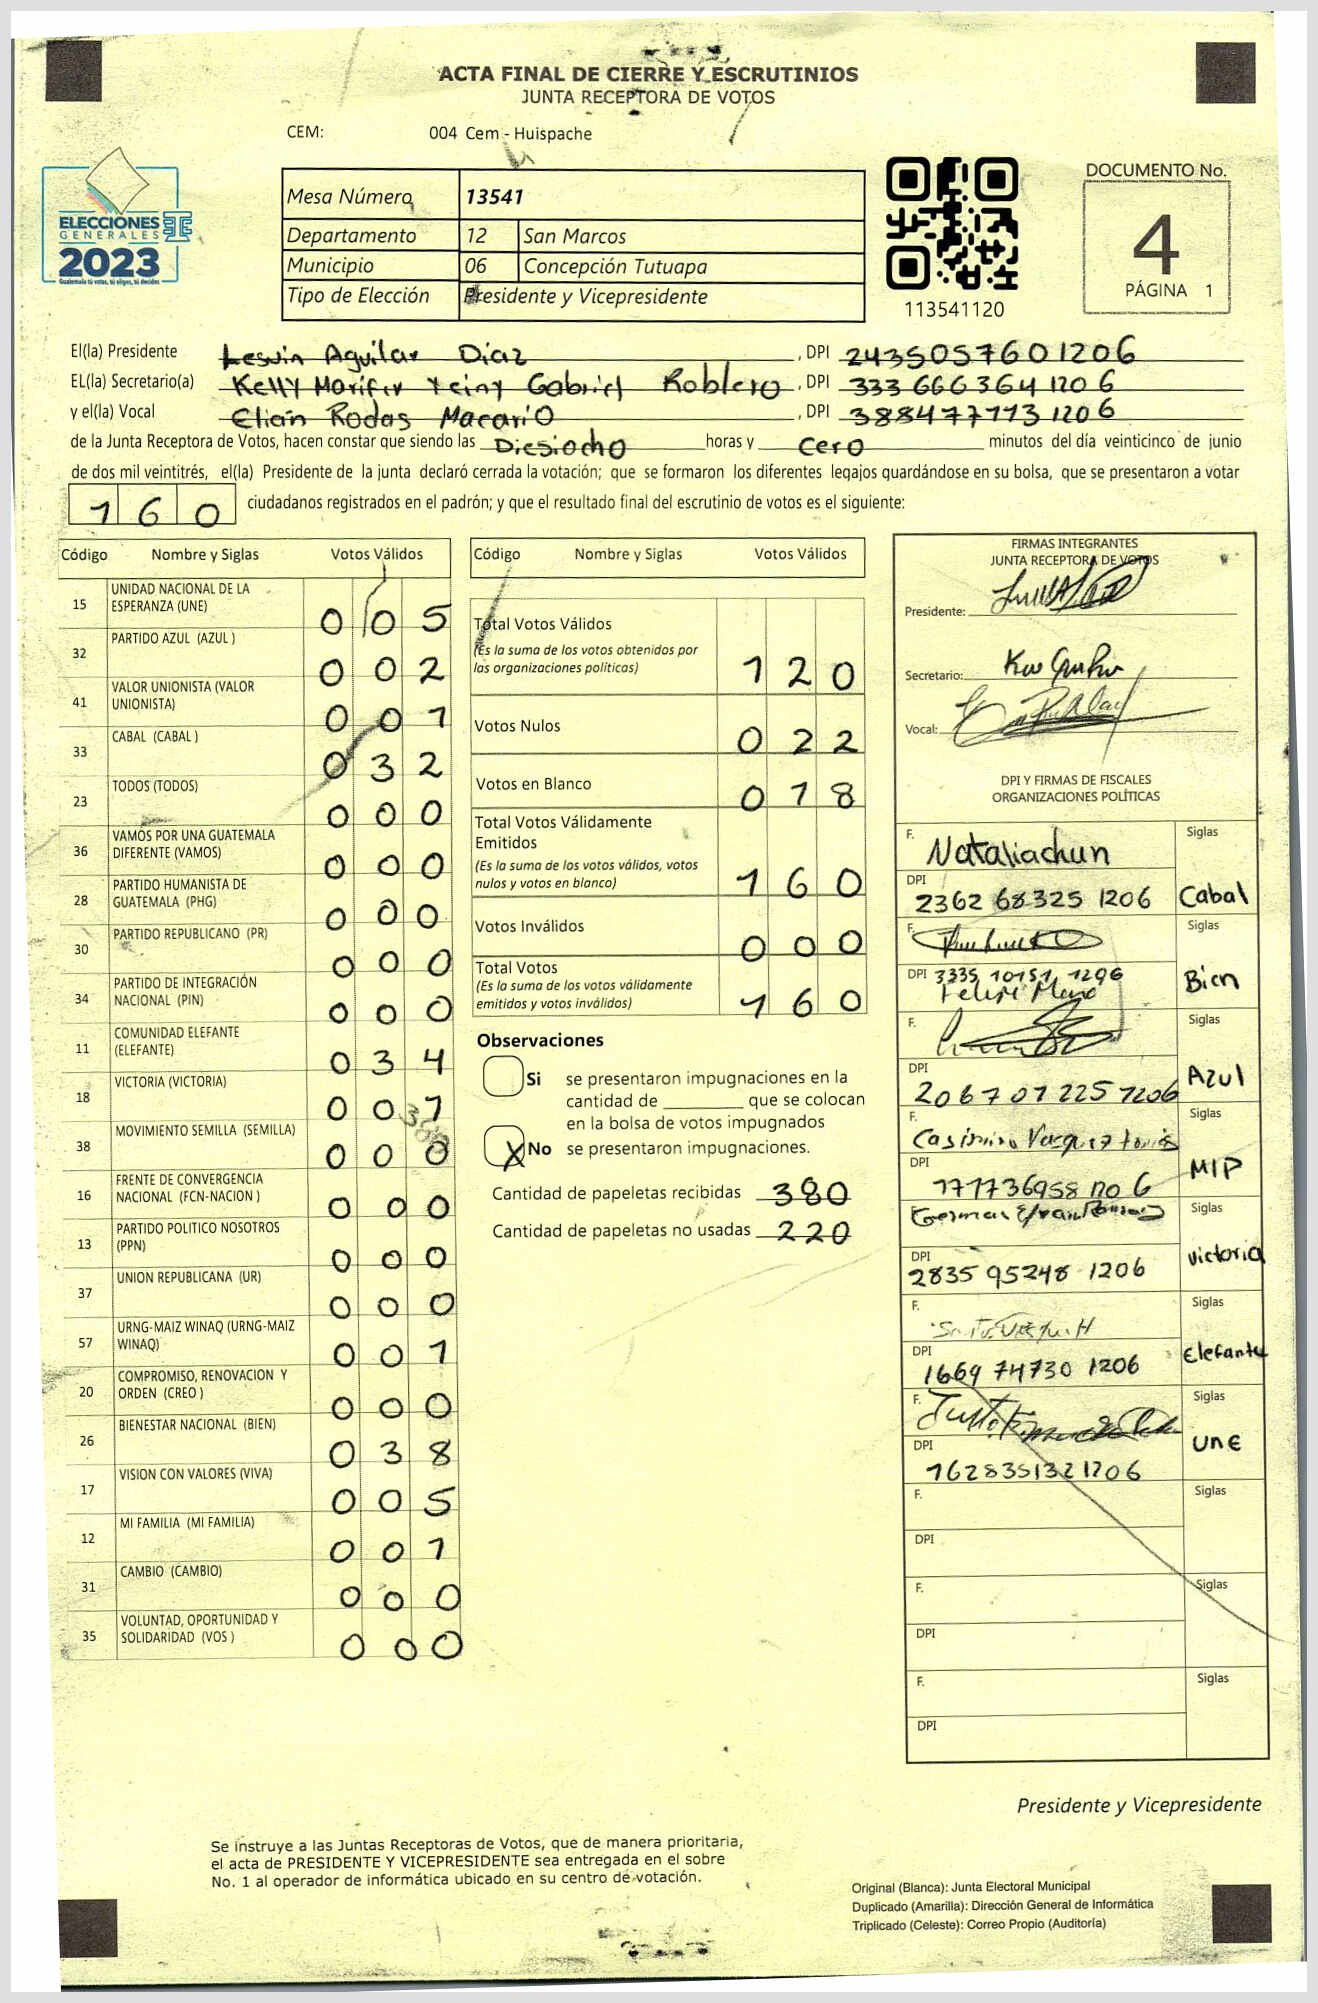 ACTA FINAL DE CIERRE Y ESCRUTINIOS
JUNTA RECEPTORA DE VOTOS
CEM: 004 Cem - Huispache
ELECCIONES
GENERALES
2023
Guatemala tú votas, tú eliges, tú decides
Mesa Número 13541
Departamento 12 San Marcos
Municipio 06 Concepción Tutuapa
Tipo de Elección Presidente y Vicepresidente
113541120
DOCUMENTO No.
4
PÁGINA 1
El(la) Presidente Leswin Aguilar Diaz , DPI 2435057601206
EL(la) Secretario(a) Kelly Marifer Yeiny Gabriel Roblero , DPI 333 666 364 1206
y el(la) Vocal Elián Rodas Macario , DPI 3884777731206
de la Junta Receptora de Votos, hacen constar que siendo las Diesiocho horas y Cero minutos del día veinticinco de junio
de dos mil veintitrés, el(la) Presidente de la junta declaró cerrada la votación; que se formaron los diferentes legajos guardándose en su bolsa, que se presentaron a votar
160 ciudadanos registrados en el padrón; y que el resultado final del escrutinio de votos es el siguiente:
Código Nombre y Siglas Votos Válidos
15 UNIDAD NACIONAL DE LA ESPERANZA (UNE) 0 0 5
32 PARTIDO AZUL (AZUL ) 0 0 2
41 VALOR UNIONISTA (VALOR UNIONISTA) 0 0 1
33 CABAL (CABAL ) 0 3 2
23 TODOS (TODOS) 0 0 0
36 VAMOS POR UNA GUATEMALA DIFERENTE (VAMOS) 0 0 0
28 PARTIDO HUMANISTA DE GUATEMALA (PHG) 0 0 0
30 PARTIDO REPUBLICANO (PR) 0 0 0
34 PARTIDO DE INTEGRACIÓN NACIONAL (PIN) 0 0 0
11 COMUNIDAD ELEFANTE (ELEFANTE) 0 3 4
18 VICTORIA (VICTORIA) 0 0 1
38 MOVIMIENTO SEMILLA (SEMILLA) 0 0 0
16 FRENTE DE CONVERGENCIA NACIONAL (FCN-NACION ) 0 0 0
13 PARTIDO POLITICO NOSOTROS (PPN) 0 0 0
37 UNION REPUBLICANA (UR) 0 0 0
57 URNG-MAIZ WINAQ (URNG-MAIZ WINAQ) 0 0 1
20 COMPROMISO, RENOVACION Y ORDEN (CREO ) 0 0 0
26 BIENESTAR NACIONAL (BIEN) 0 3 8
17 VISION CON VALORES (VIVA) 0 0 5
12 MI FAMILIA (MI FAMILIA) 0 0 1
31 CAMBIO (CAMBIO) 0 0 0
35 VOLUNTAD, OPORTUNIDAD Y SOLIDARIDAD (VOS ) 0 0 0
Código Nombre y Siglas Votos Válidos
Total Votos Válidos 1 2 0
(Es la suma de los votos obtenidos por
las organizaciones políticas)
Votos Nulos 0 2 2
Votos en Blanco 0 1 8
Total Votos Válidamente
Emitidos 1 6 0
(Es la suma de los votos válidos, votos
nulos y votos en blanco)
Votos Inválidos 0 0 0
Total Votos 1 6 0
(Es la suma de los votos válidamente
emitidos y votos inválidos)
Observaciones
Si se presentaron impugnaciones en la
cantidad de ________ que se colocan
en la bolsa de votos impugnados
X No se presentaron impugnaciones.
Cantidad de papeletas recibidas 380
Cantidad de papeletas no usadas 220
FIRMAS INTEGRANTES
JUNTA RECEPTORA DE VOTOS
Presidente:
Secretario:
Vocal:
DPI Y FIRMAS DE FISCALES
ORGANIZACIONES POLÍTICAS
F. Nataliachun Siglas
DPI 2362 68325 1206 Cabal
F. Siglas
DPI 3335 10151 1206 Bien
Felipe
F. Siglas
DPI 2067 01 225 1206 Azul
F. Casimiro Vasquez Siglas
DPI MIP
F. German Siglas
DPI 2835 95248 1206 Victoria
F. Siglas
DPI 1669 74730 1206 Elefante
F. Siglas
DPI 1628351321206 UNE
F. Siglas
DPI
F. Siglas
DPI
F. Siglas
DPI
Presidente y Vicepresidente
Se instruye a las Juntas Receptoras de Votos, que de manera prioritaria,
el acta de PRESIDENTE Y VICEPRESIDENTE sea entregada en el sobre
No. 1 al operador de informática ubicado en su centro de votación.
Original (Blanca): Junta Electoral Municipal
Duplicado (Amarilla): Dirección General de Informática
Triplicado (Celeste): Correo Propio (Auditoría)